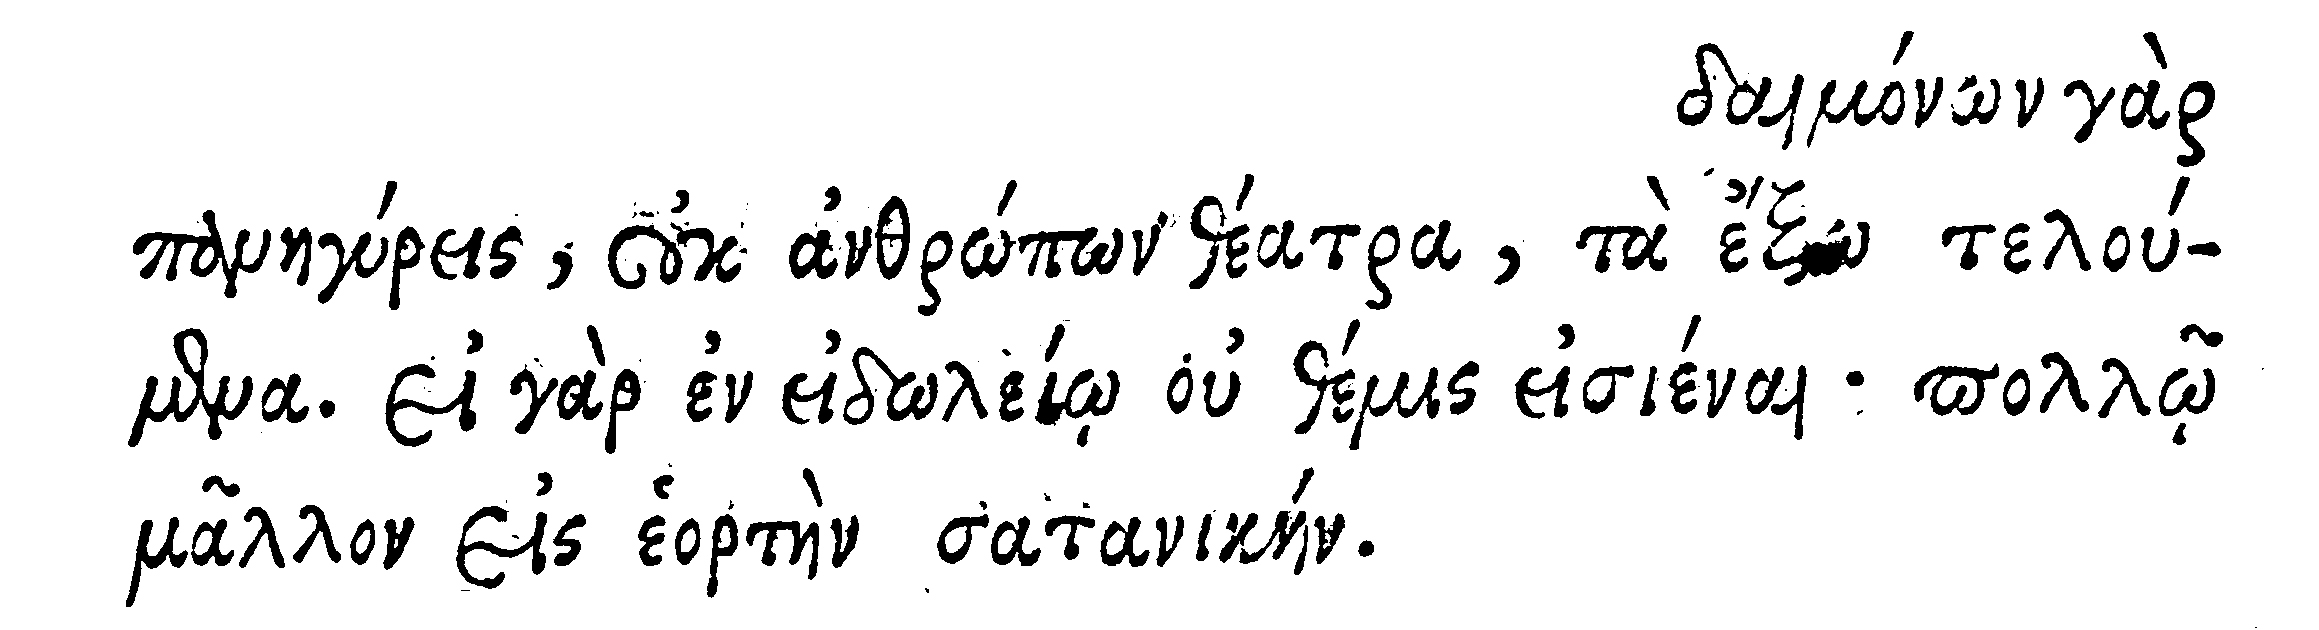 δαιμόνων γὰρ
πανηγύρεις, οὐκ ἀνθρώπων θέατρα, τὰ ἔξω τελού-
μενα. εἰ γὰρ ἐν εἰδωλείῳ οὐ θέμις εἰσιέναι· πολλῷ
μᾶλλον εἰς ἑορτὴν σατανικήν.